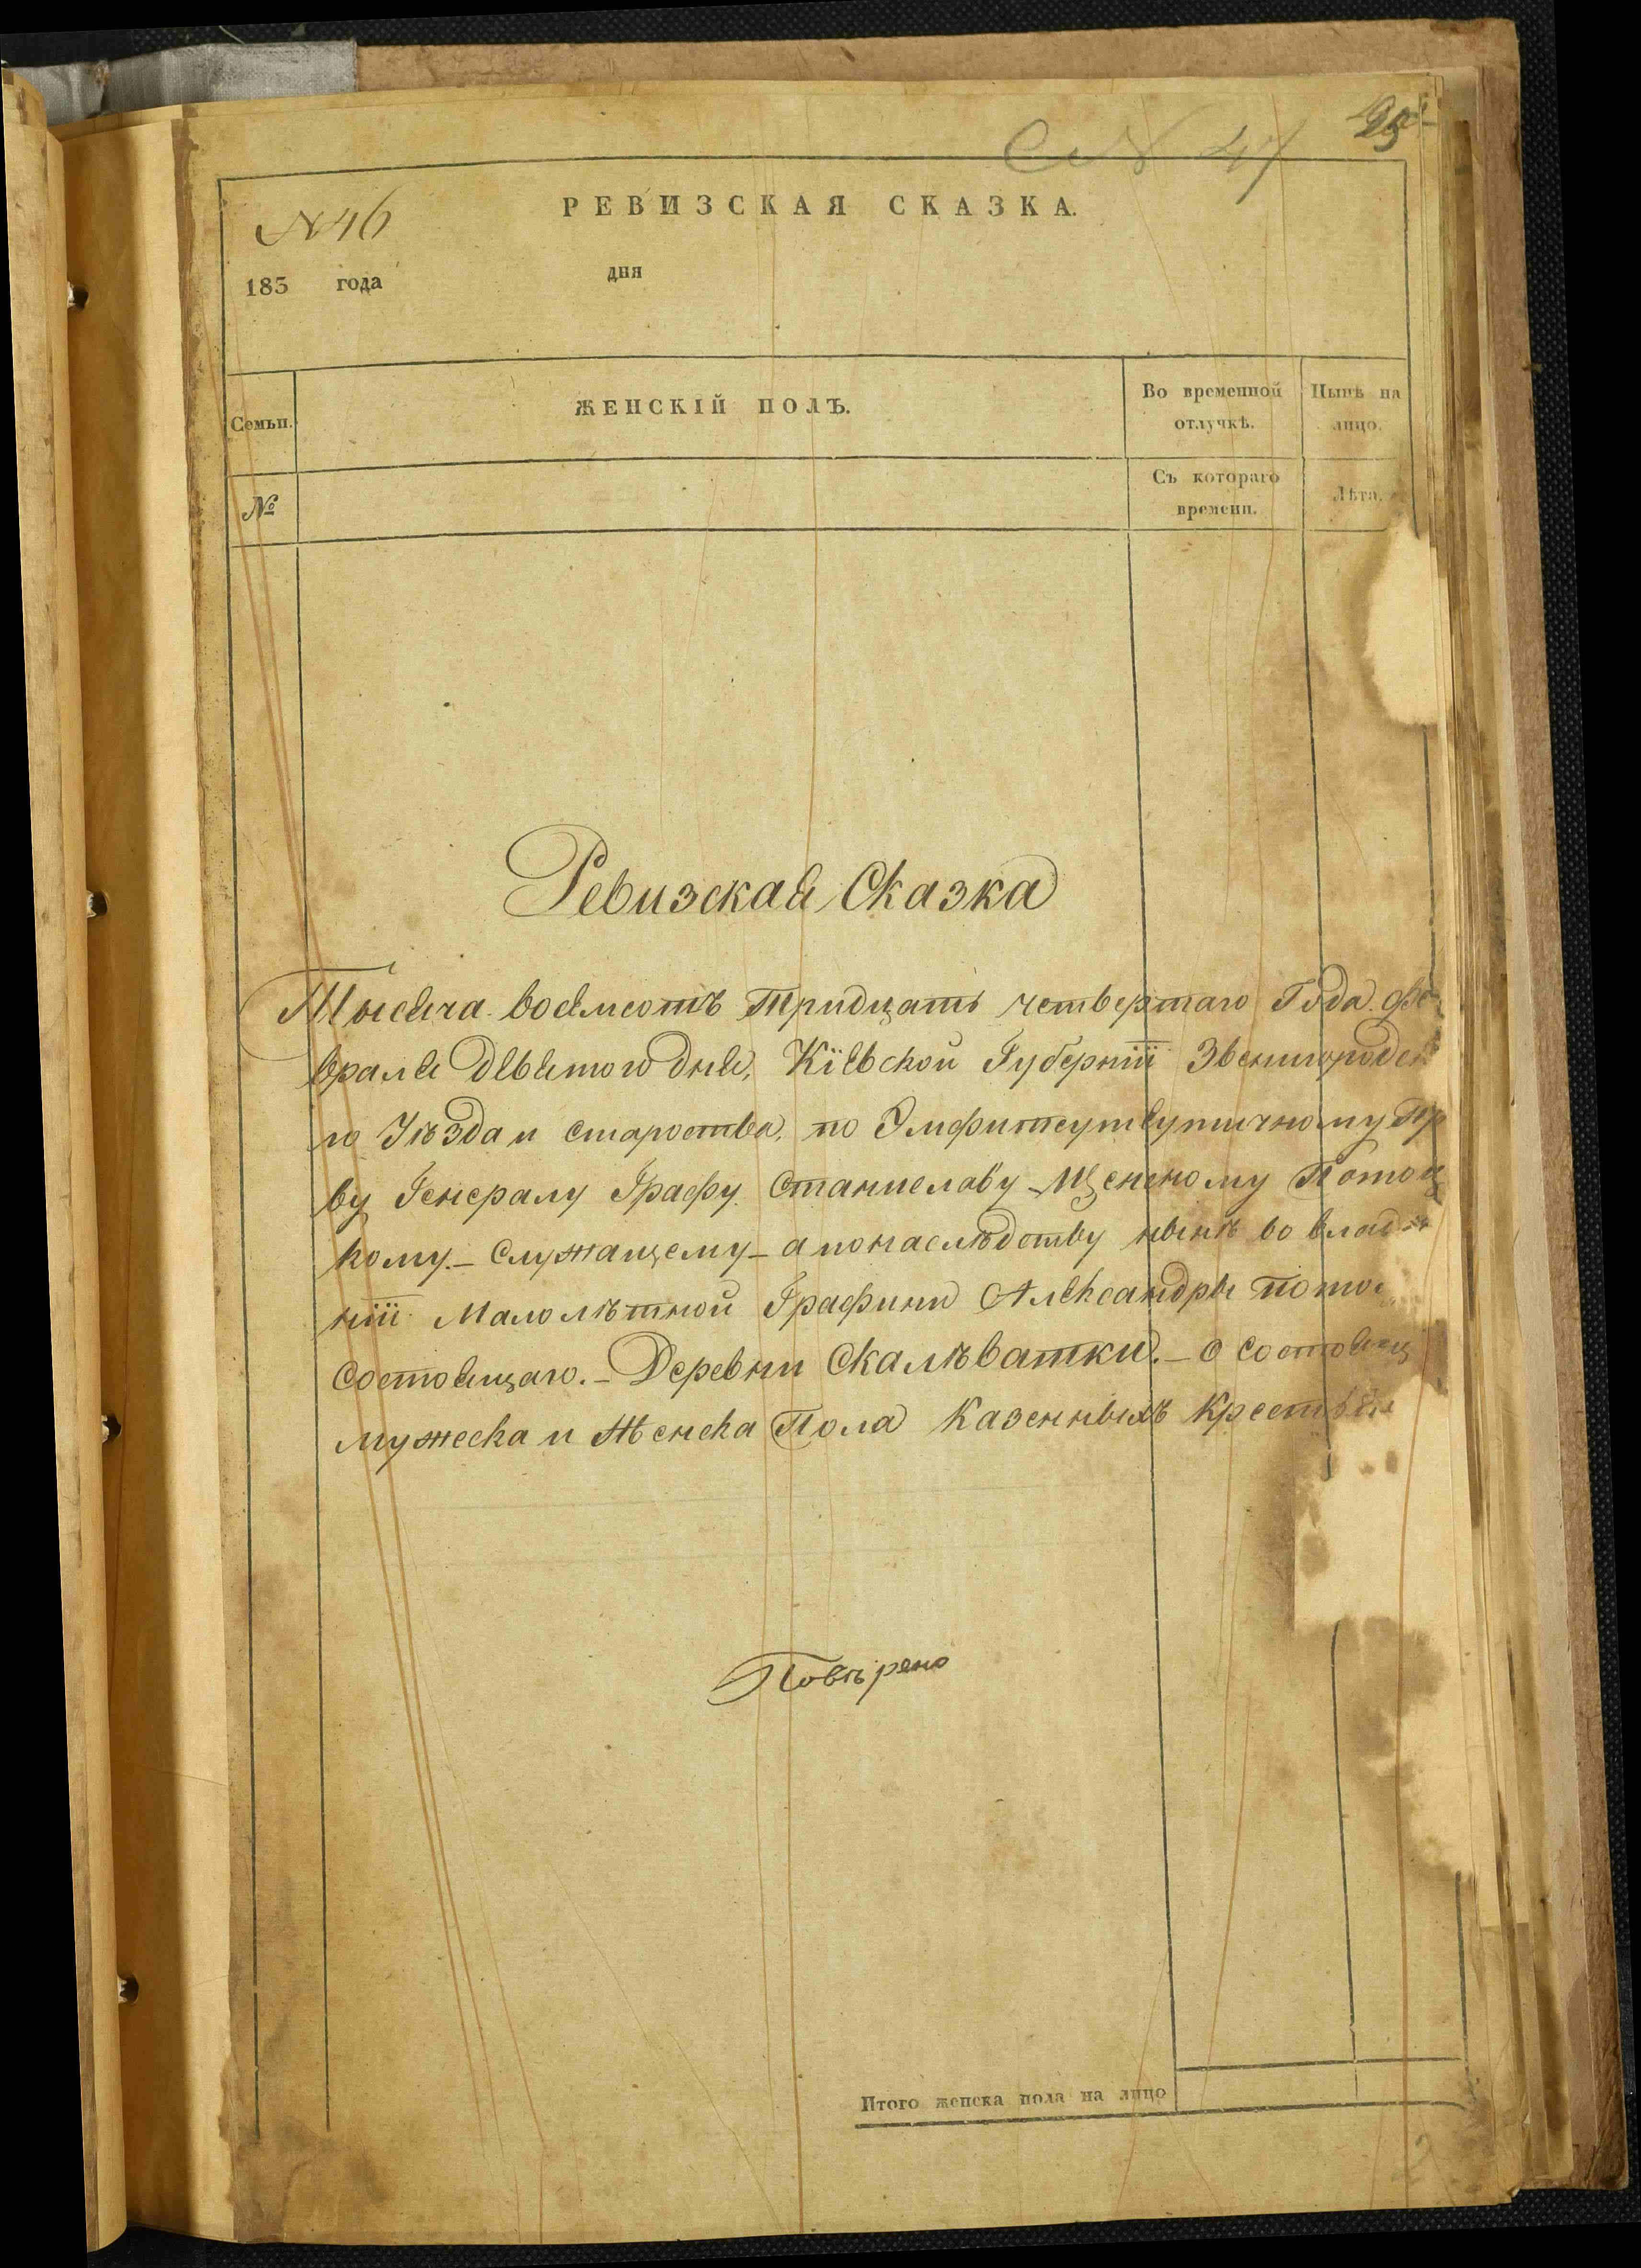 N 47
25
РЕВИЗСКАЯ СКАЗКА.
N 46
183 года дня
Семьи. ЖЕНСКІЙ ПОЛЪ. Во временной отлучкѣ. Нынѣ на лицо.
№ Съ котораго времени. Лѣта.
Ревизская Сказка
Тысяча восемсотъ Тридцать четвертаго Года фе
враля девятого дня, Кіевской Губерніи Звенигородск
го Уѣзда и староства, по Эмфитеутвутичному пр
ву Генералу Графу Станиславу Щенсному Потоц
кому. – Служащему – а понаслѣдству нынѣ во владѣ
ніи Малолѣтной Графини Александры пото
состоящаго. – Деревни Скалѣватки. – о состоящ
мужеска и женска Пола Казенныхъ Крестьян
Повѣрено
Итого женска пола на лицо